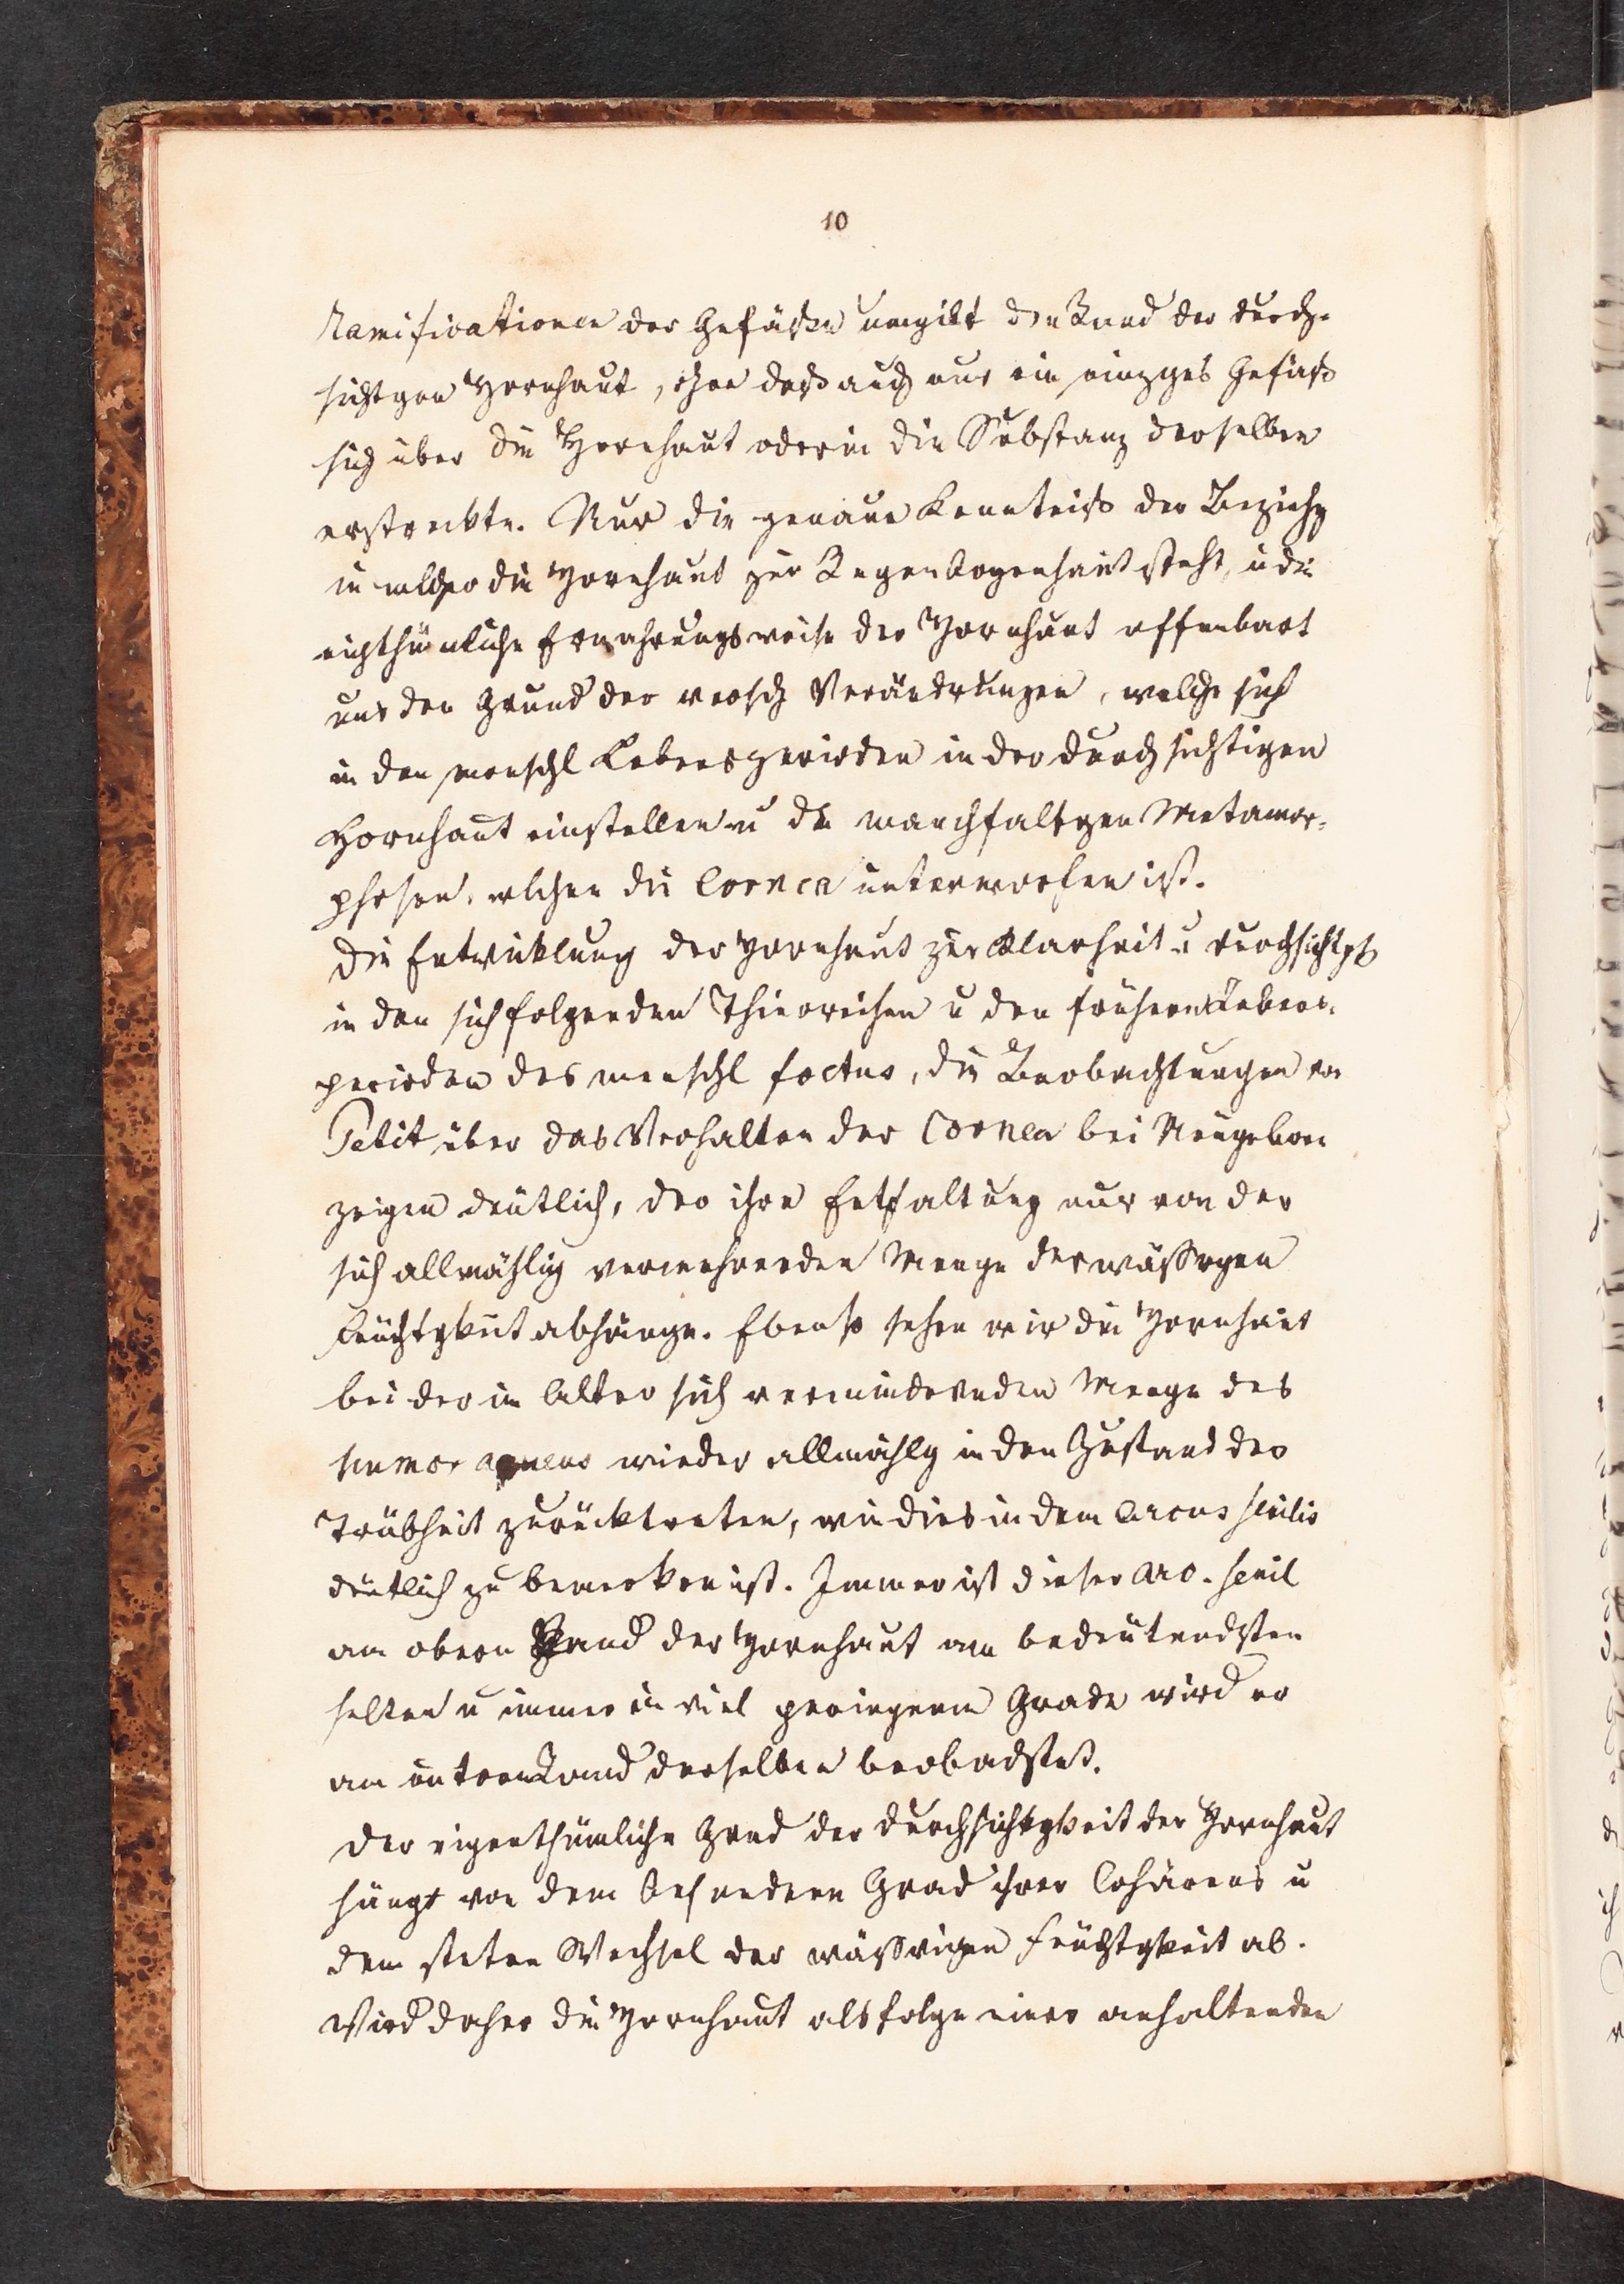 10
Ramificationen der Gefäßen umgibt den Rand der durch-
sichtgen Hornhaut, ohne daß auch nur ein einzges Gefäß
sich über die Hornhaut oder in die Substanz derselben
erstreckte. Nur die genaue Kenntniß der Beziehg
in welcher die Hornhaut zur Regenbogenhaut steht, u die
eigthümliche Ernahrungsweise der Hornhaut offenbart
uns den Grund der versch Verändrungen, welche sich
in den menschl Lebensperioden in der durchsichtigen
Hornhaut einstellen u die manchfaltgen Metamor-
phosen, welchen die Cornea unterworfen ist.
Die Entwicklung der Hornhaut zur Klarheit u Durchsichtgkt
in den sich folgenden Thierreihen u den frühern Lebens-
perioden des menschl foetus, die Beobachtungen von
Petit über das Verhalten der Cornea bei Neugebornen
zeigen deutlich, das ihre Entfaltung nur von der
sich allmählig vermehrenden Menge der wässrgen
Feuchtgkeit abhänge. Ebenso sehen wir die Hornhaut
bei der im Alter sich vermindernden Menge des
humor aqueus wieder allmählg in den Zustand der
Trübheit zurücktreten, wie dies in dem Arcus senilis
deutlich zu bemerken ist. Immer ist dieser Arc. senil
am obern Rand der Hornhaut am bedeutendsten
selten u immer in viel geringerm Grade wird er
am untern Rand derselben beobachtet.
Der eigenthümliche Grad der Durchsichtgkeit der Hornhaut
hängt von dem besondern Grad ihrer Cohärens u
dem steten Wechsel der wäßrigen Feuchtgkeit ab.
Wird daher die Hornhaut als Folge einer anhaltenden